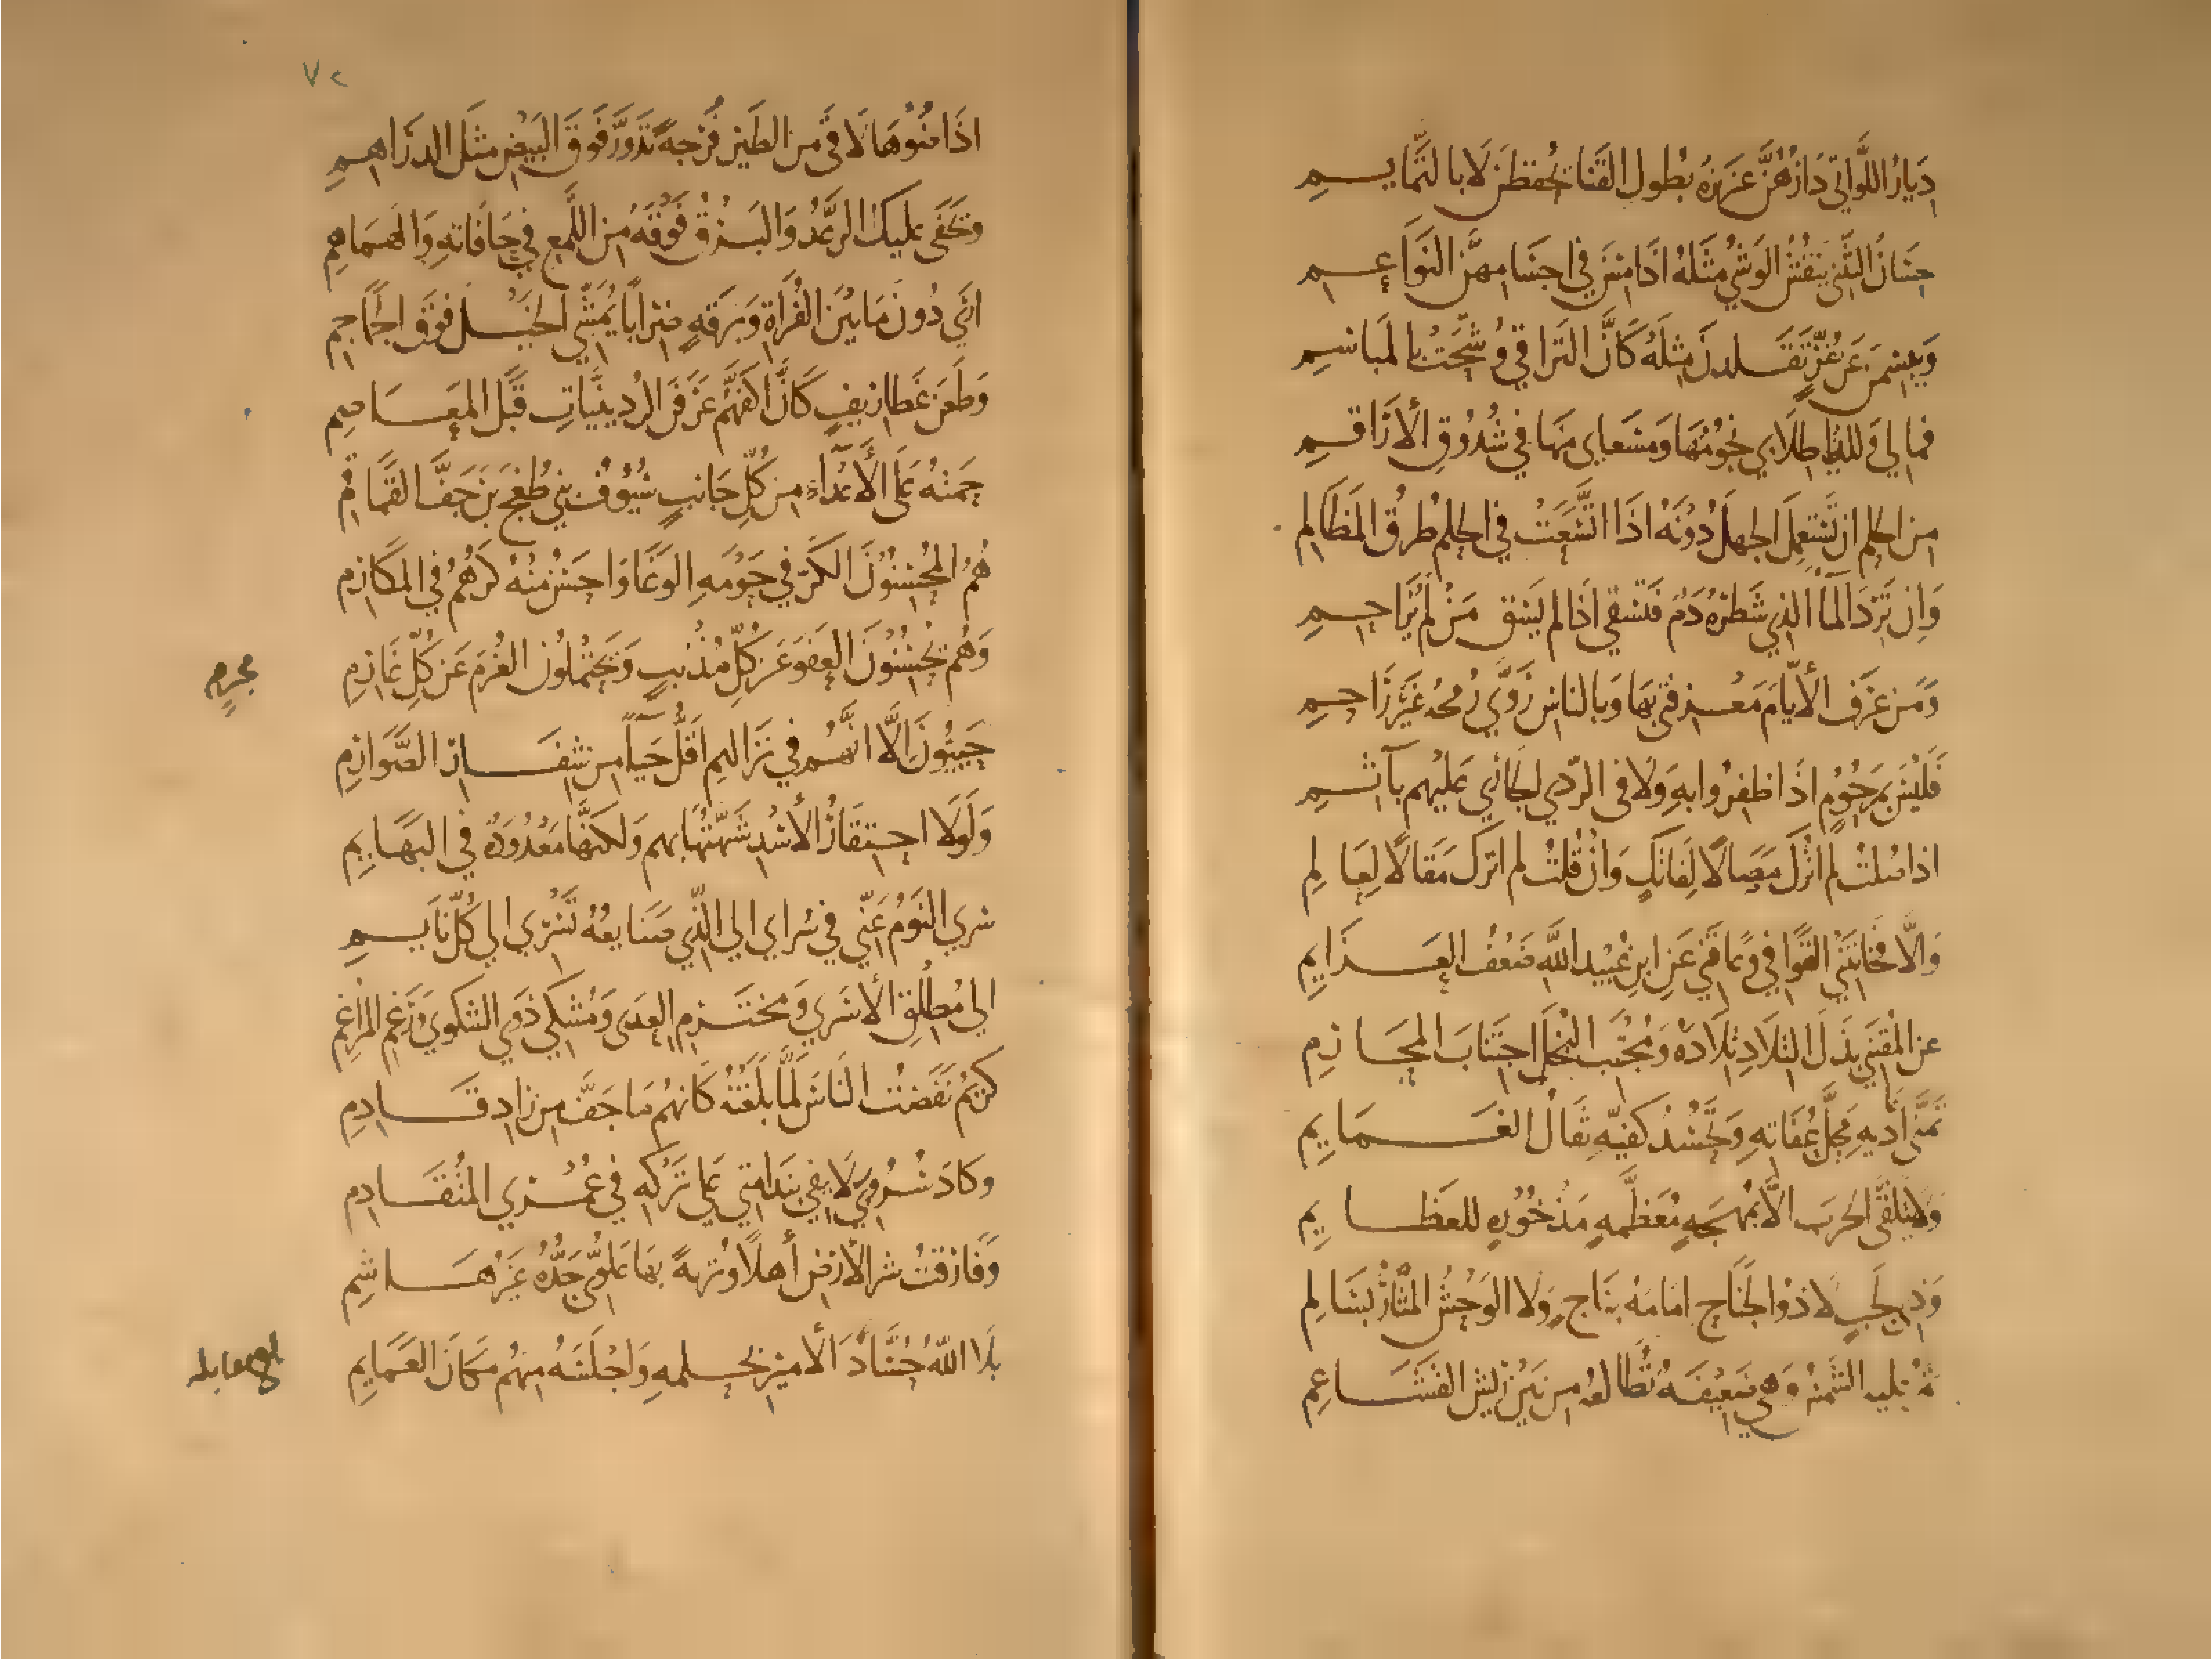 ديارُ اللَّواتي دَارُهُنَّ عَزيزةٌ بطولِ القَنا يُحفظنَ لا بالتَّمايــمِ
حسَانُ التَّثني ينقشُ الوشيُ مثلَهُ اذا مسنَ في اجسامهنَّ النَّواعــمِ
ويبسِمنَ عن دُرٍّ تقــلدنَ مثلَهُ كأنَّ التَّراقي وُشّحت بالمباسمِ
فمالي وللدنيا طلابي نجومُها ومسعاي منها في شدوقِ الأراقــمِ
من الحلم ان تستعملَ الجهلَ دونَهُ اذا اتَّسعَتْ في الحلم طُرقُ المظالمِ
وان تَرِدَ المآءَ الذي شطرُهُ دمٌ فتسقي اذا لم يُسقَ مَنْ لم يُزاحــمِ
ومَن عرف الأيّامَ معــرفتي بها وبالناس رَوَّي رُمحَهُ غيرَ راحــمِ
فليسَ بمرحُومٍ اذا ظفرُوا بهِ ولا في الرّدي الجاري عليهم بآثــمِ
اذا صُلتُ لم اترك مَصالًا لفاتكٍ وان قُلتُ لم اترك مقالًا لعالمِ
والّا فخانتني القوافي وعاقني عن ابنِ عُبيدِ اللّهِ ضَعفُ العــزايمِ
عن المُقتني بذلَ التِلادِ تِلادَهُ ومُجتنبِ البُخل اجتنابَ المحــارمِ
تمنّي اعاديهِ محلَّ عُفاتهِ وتحسُدُ كفّيهِ ثقالُ الغــمايمِ
ولا يتلقّي الحربَ الّا بمُهجــةٍ مُعظّمةٍ مَذخُورةٍ للعظــايمِ
وذي لجَبٍ لا ذو الجَناحِ امامَهُ بناجٍ ولا الوحشُ المُثارُ بسالمِ
تمُرُّ عليه الشَّمسُ وهي ضعيفــةٌ تُطالعُه من بين ريش القشــاعمِ
٧٢
اذا ضَوءُها لاقَي من الطَّير فُرجةً تدوَّرَ فوقَ البَيضِ مثلَ الدراهــمِ
وتخفَي عليك الرَّعدُ والبــرقُ فوقَهُ من اللَّمعِ في حافاتهِ والهماهمِ
اري دونَ ما بينَ الفُراتِ وبرقةٍ ضِرابًا يُمشّي الخيــلَ فوقَ الجماجمِ
وطعنَ غطاريفٍ كأنَّ اكفَّهُم عرفنَ الرُدينيَّاتِ قبلَ المعــاصمِ
حمتهُ علَي الأعداءِ من كُلّ جانبٍ سُيُوفُ بني طُغجَ بنِ جفَّ القماقمِ
هُمُ المُحسنُونَ الكَرَّ في حومةِ الوغا واحسنُ منهُ كرّهُم في المكارمِ
وهُم يُحسنُونَ العفوَ عن كُلِّ مُذنبٍ ويحتملُونَ الغُرمَ عن كُلِّ غارمِ
مجرمٍ
حييُّونَ الّا انّهــم في نزالهم اقلُّ حيآءً من شفــار الصَّوارمِ
ولولا احتقارُ الأسدِ شبّهتُها بهم ولكنَّها معدُودةٌ في البهــايمِ
سري النَّومُ عنّي في سُراي الي الّذي صنايعُهُ تَسري الي كُلّ نايــمِ
الي مُطلقِ الأسري ومخترمِ العدي ومُشكي ذوي الشكوي ورَغمِ المُراغمِ
كريمٌ نفضتُ الناسَ لمّا بلغتُهُ كأنهُم ما جفَّ من زادِ قــادمِ
وكادَ سُروري لا يفي بندامتي علي تركهِ في عُمــري المُتقــادمِ
وفارقتُ شرَّ الأرضِ أهلًا وتُربةً بها علويٌّ جدُّهُ غيرُ هــاشمِ
بلا اللّهُ حُسَّادَ الأميرِ بحــلمهِ واجلسَهُ منهُم مكانَ العمايمِ
بلغ مقابله